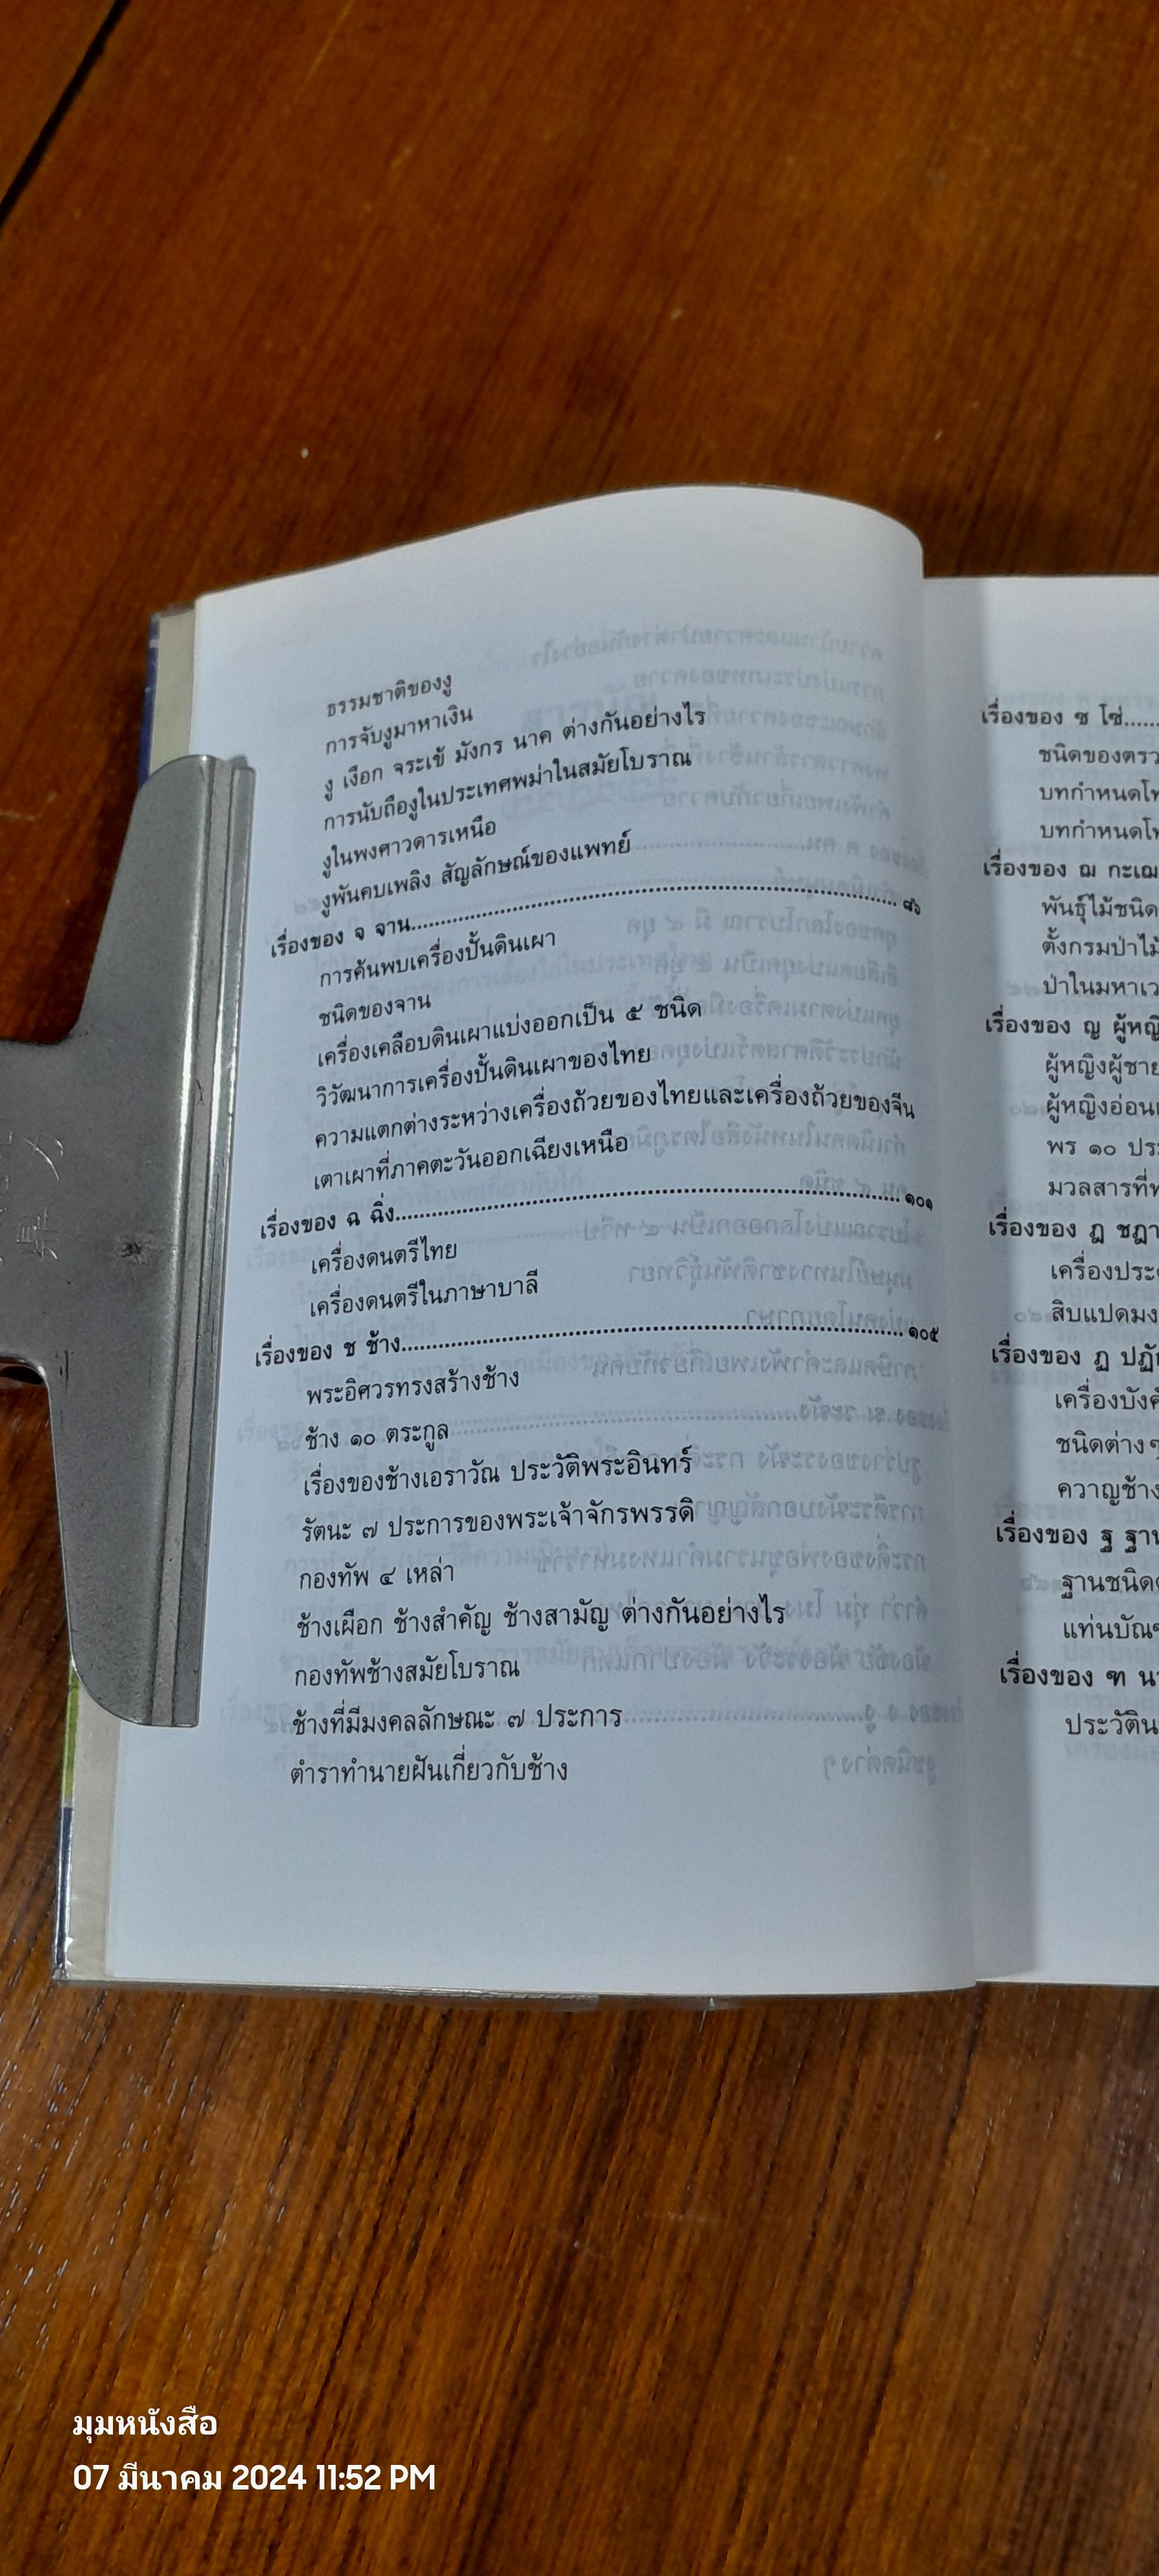 ธรรมชาติของงู
การจับงูมาหาเงิน
งู เงือก จระเข้ มังกร นาค ต่างกันอย่างไร
การนับถืองูในประเทศพม่าในสมัยโบราณ
งูในพงศาวดารเหนือ
งูพันคบเพลิง สัญลักษณ์ของแพทย์
เรื่องของ จ จาน........................................ ๘๖
การค้นพบเครื่องปั้นดินเผา
ชนิดของจาน
เครื่องเคลือบดินเผาแบ่งออกเป็น ๕ ชนิด
วิวัฒนาการเครื่องปั้นดินเผาของไทย
ความแตกต่างระหว่างเครื่องถ้วยของไทยและเครื่องถ้วยของจีน
เตาเผาที่ภาคตะวันออกเฉียงเหนือ
เรื่องของ ฉ ฉิ่ง........................................ ๑๐๑
เครื่องดนตรีไทย
เครื่องดนตรีในภาษาบาลี
เรื่องของ ช ช้าง........................................ ๑๐๕
พระอิศวรทรงสร้างช้าง
ช้าง ๑๐ ตระกูล
เรื่องของช้างเอราวัณ ประวัติพระอินทร์
รัตนะ ๗ ประการของพระเจ้าจักรพรรดิ
กองทัพ ๔ เหล่า
ช้างเผือก ช้างสำคัญ ช้างสามัญ ต่างกันอย่างไร
กองทัพช้างสมัยโบราณ
ช้างที่มีมงคลลักษณะ ๗ ประการ
ตำราทำนายฝันเกี่ยวกับช้าง
เรื่องของ ซ โซ่......
ชนิดของตรว
บทกำหนดโท
บทกำหนดโท
เรื่องของ ฌ กะเฌ
พันธุ์ไม้ชนิด
ตั้งกรมป่าไม้
ป่าในมหาเว
เรื่องของ ญ ผู้หญิ
ผู้หญิงผู้ชาย
ผู้หญิงอ่อน
พร ๑๐ ประ
มวลสารที่
เรื่องของ ฎ ชฎา
เครื่องประ
สิบแปดมง
เรื่องของ ฏ ปฏั
เครื่องบังคั
ชนิดต่าง ๆ
ควาญช้าง
เรื่องของ ฐ ฐาน
ฐานชนิด
แท่นบัณ
เรื่องของ ฑ น
ประวัติน
มุมหนังสือ
07 มีนาคม 2024 11:52 PM